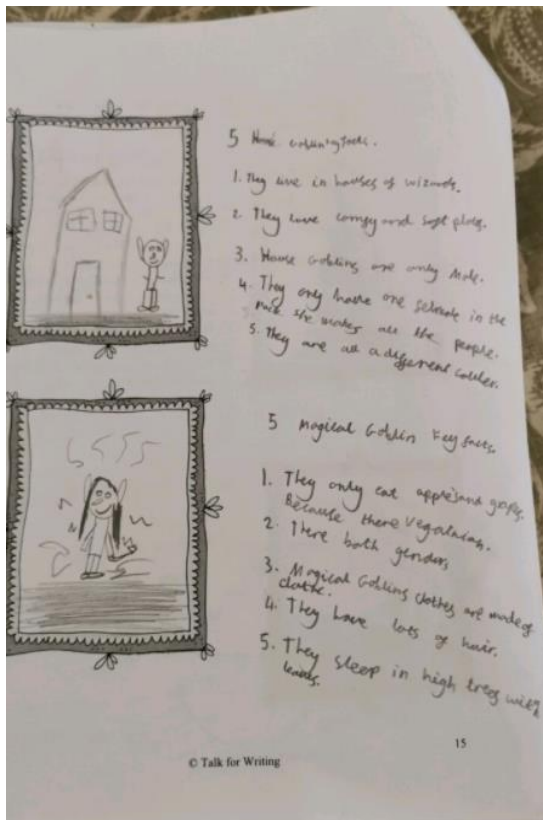 5 House Goblin key facts.
1. They live in houses of wizards.
2. They love comfy and soft places.
3. House Goblins are only Male.
4. They only have one female in the
pack she makes all the people.
5. They are all a different
5 Magical Goblin Key facts.
1. They only eat apples and grapes.
Because there
2. There both genders
3. Magical Goblins clothes are made of
4. They have lots of hair.
5. They sleep in high trees with
15
© Talk for Writing